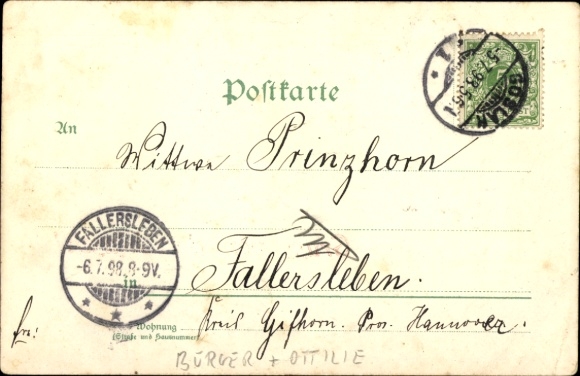 Postkarte
GOSLAR
5.7.98
1
An
Wittwe Prinzhorn
FALLERSLEBEN
-6.7.98.8-9V.
in
Fallersleben.
Wohnung
(Straße und Hausnummer)
frei:
Kreis Gifhorn. Prov. Hannover.
BÜRGER + OTTILIE